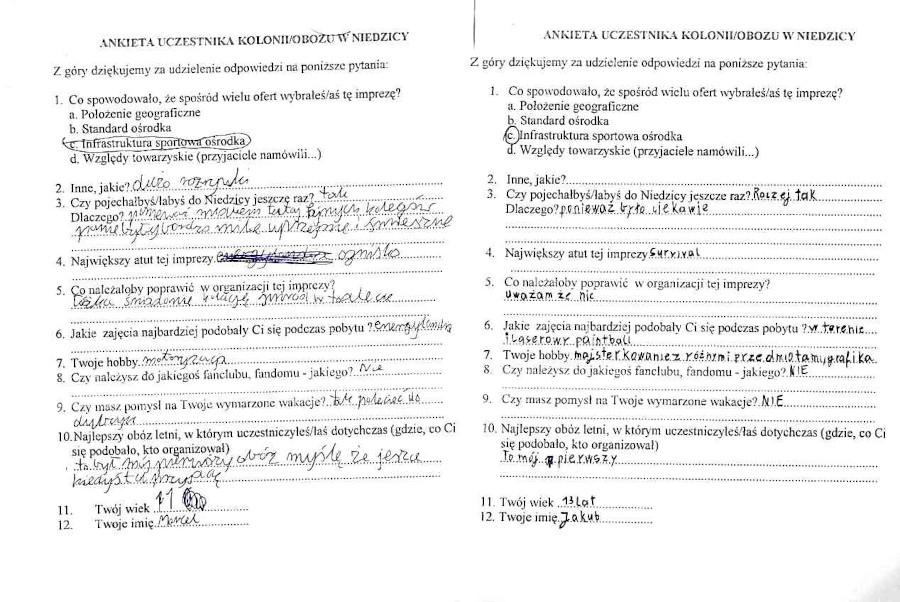 ANKIETA UCZESTNIKA KOLONII/OBOZU W NIEDZICY
Z góry dziękujemy za udzielenie odpowiedzi na poniższe pytania:
1. Co spowodowało, że spośród wielu ofert wybrałeś/aś tę imprezę?
a. Położenie geograficzne
b. Standard ośrodka
c. Infrastruktura sportowa ośrodka
d. Względy towarzyskie (przyjaciele namówili...)
2. Inne, jakie? dużo rozrywki
3. Czy pojechałbyś/łabyś do Niedzicy jeszcze raz? tak
Dlaczego? ponieważ miałem tutaj fajnych kolegów
panie były bardzo miłe uprzejme i śmieszne
4. Największy atut tej imprezy ognisko
5. Co należałoby poprawić w organizacji tej imprezy?
śniadanie kolację w toalecie
6. Jakie zajęcia najbardziej podobały Ci się podczas pobytu ? energylandia
7. Twoje hobby motoryzacja
8. Czy należysz do jakiegoś fanclubu, fandomu - jakiego? Nie
9. Czy masz pomysł na Twoje wymarzone wakacje? tak polecieć do
10. Najlepszy obóz letni, w którym uczestniczyłeś/łaś dotychczas (gdzie, co Ci
się podobało, kto organizował)
to był mój pierwszy obóz myślę że jeszcze
kiedyś tu przyjadę
11. Twój wiek 11
12. Twoje imię Marcel
ANKIETA UCZESTNIKA KOLONII/OBOZU W NIEDZICY
Z góry dziękujemy za udzielenie odpowiedzi na poniższe pytania:
1. Co spowodowało, że spośród wielu ofert wybrałeś/aś tę imprezę?
a. Położenie geograficzne
b. Standard ośrodka
c. Infrastruktura sportowa ośrodka
d. Względy towarzyskie (przyjaciele namówili...)
2. Inne, jakie?
3. Czy pojechałbyś/łabyś do Niedzicy jeszcze raz? Raczej tak
Dlaczego? ponieważ było ciekawie
4. Największy atut tej imprezy Survival
5. Co należałoby poprawić w organizacji tej imprezy?
uważam że nic
6. Jakie zajęcia najbardziej podobały Ci się podczas pobytu ? w terenie
i laserowy paintball
7. Twoje hobby majsterkowanie z różnymi przedmiotamy, grafika
8. Czy należysz do jakiegoś fanclubu, fandomu - jakiego? NIE
9. Czy masz pomysł na Twoje wymarzone wakacje? NIE
10. Najlepszy obóz letni, w którym uczestniczyłeś/łaś dotychczas (gdzie, co Ci
się podobało, kto organizował)
To mój pierwszy
11. Twój wiek 13 lat
12. Twoje imię Jakub